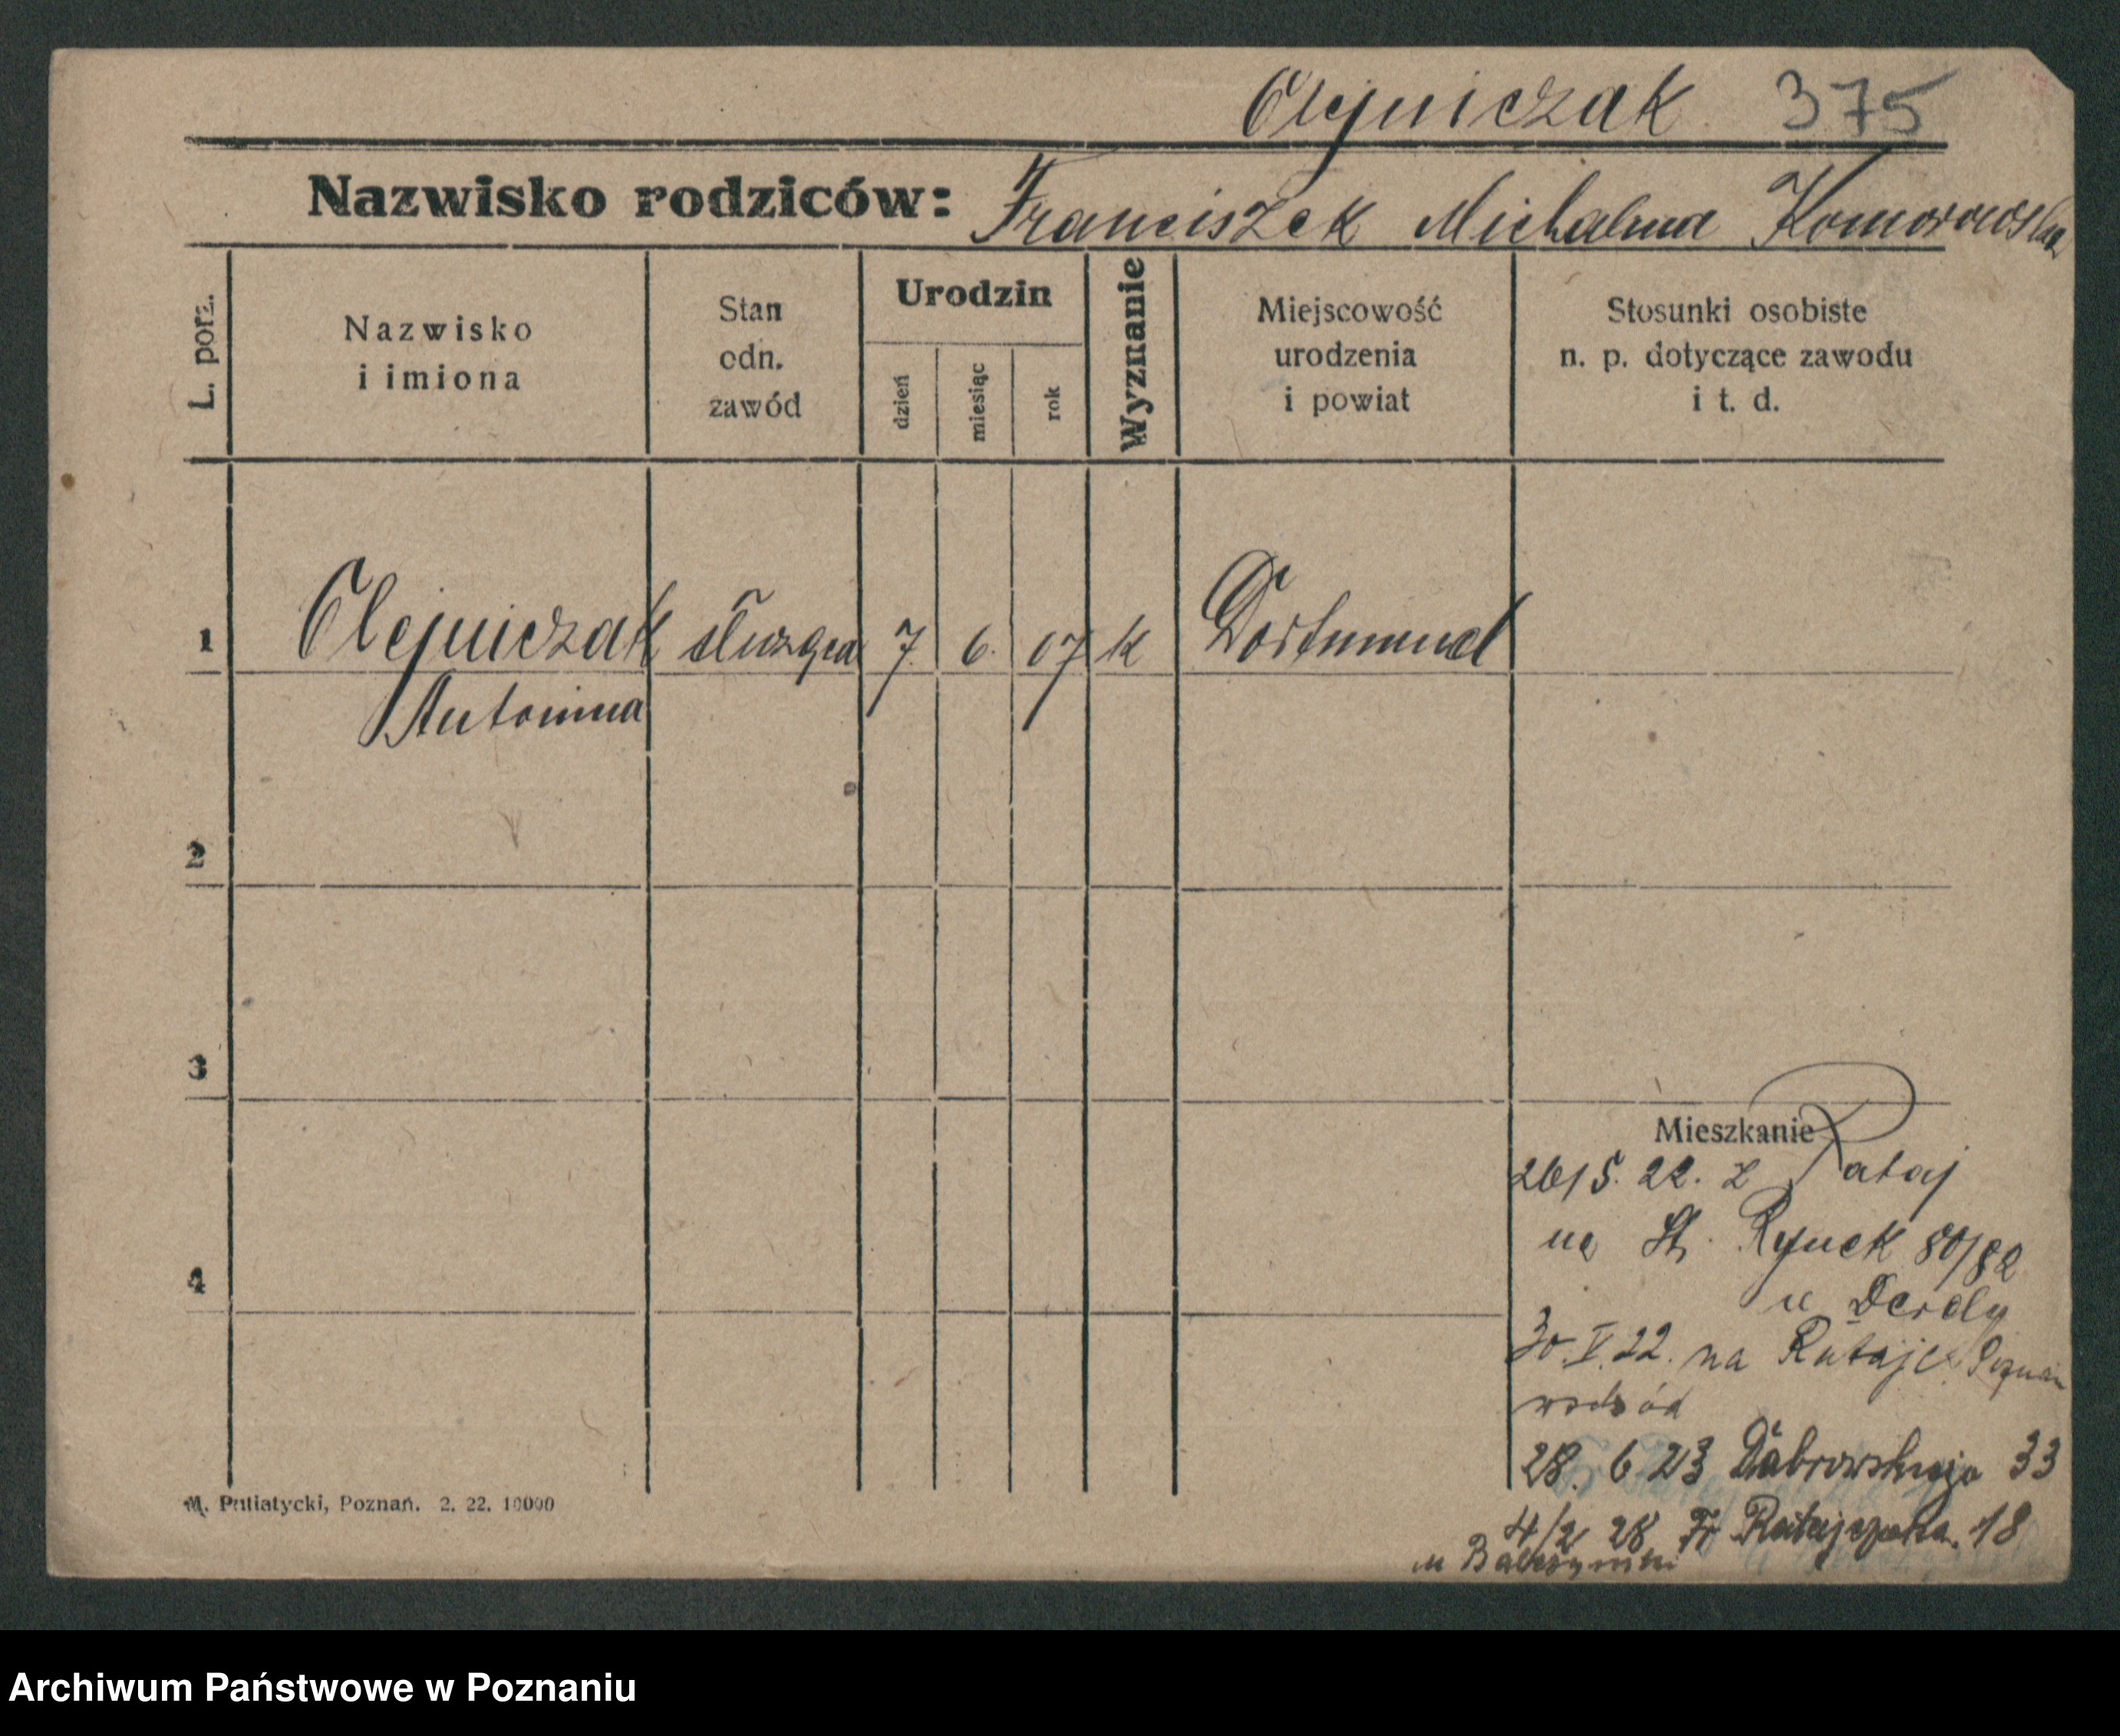 Olejniczak 375
Nazwisko rodziców: Franciszek Michalina Komorowska
L. porz.
Nazwisko
i imiona
Stan
odn.
zawód
Urodzin
dzień
miesiąc
rok
Wyznanie
Miejscowość
urodzenia
i powiat
Stosunki osobiste
n. p. dotyczące zawodu
i t. d.
1 Olejniczak służąca 7. 6. 07 k Dortmund
Antonina
2
3
4
Mieszkanie
26/5. 22. z Rataj
na St. Rynek 80/82
u Derdy
30.V.22. na Rataje Poznań
wschód
28. 6 23 Dąbrowskiego 33
4/2 28 Fr Ratajczaka 18
u
M. Putiatycki, Poznań. 2. 22. 10000
Archiwum Państwowe w Poznaniu